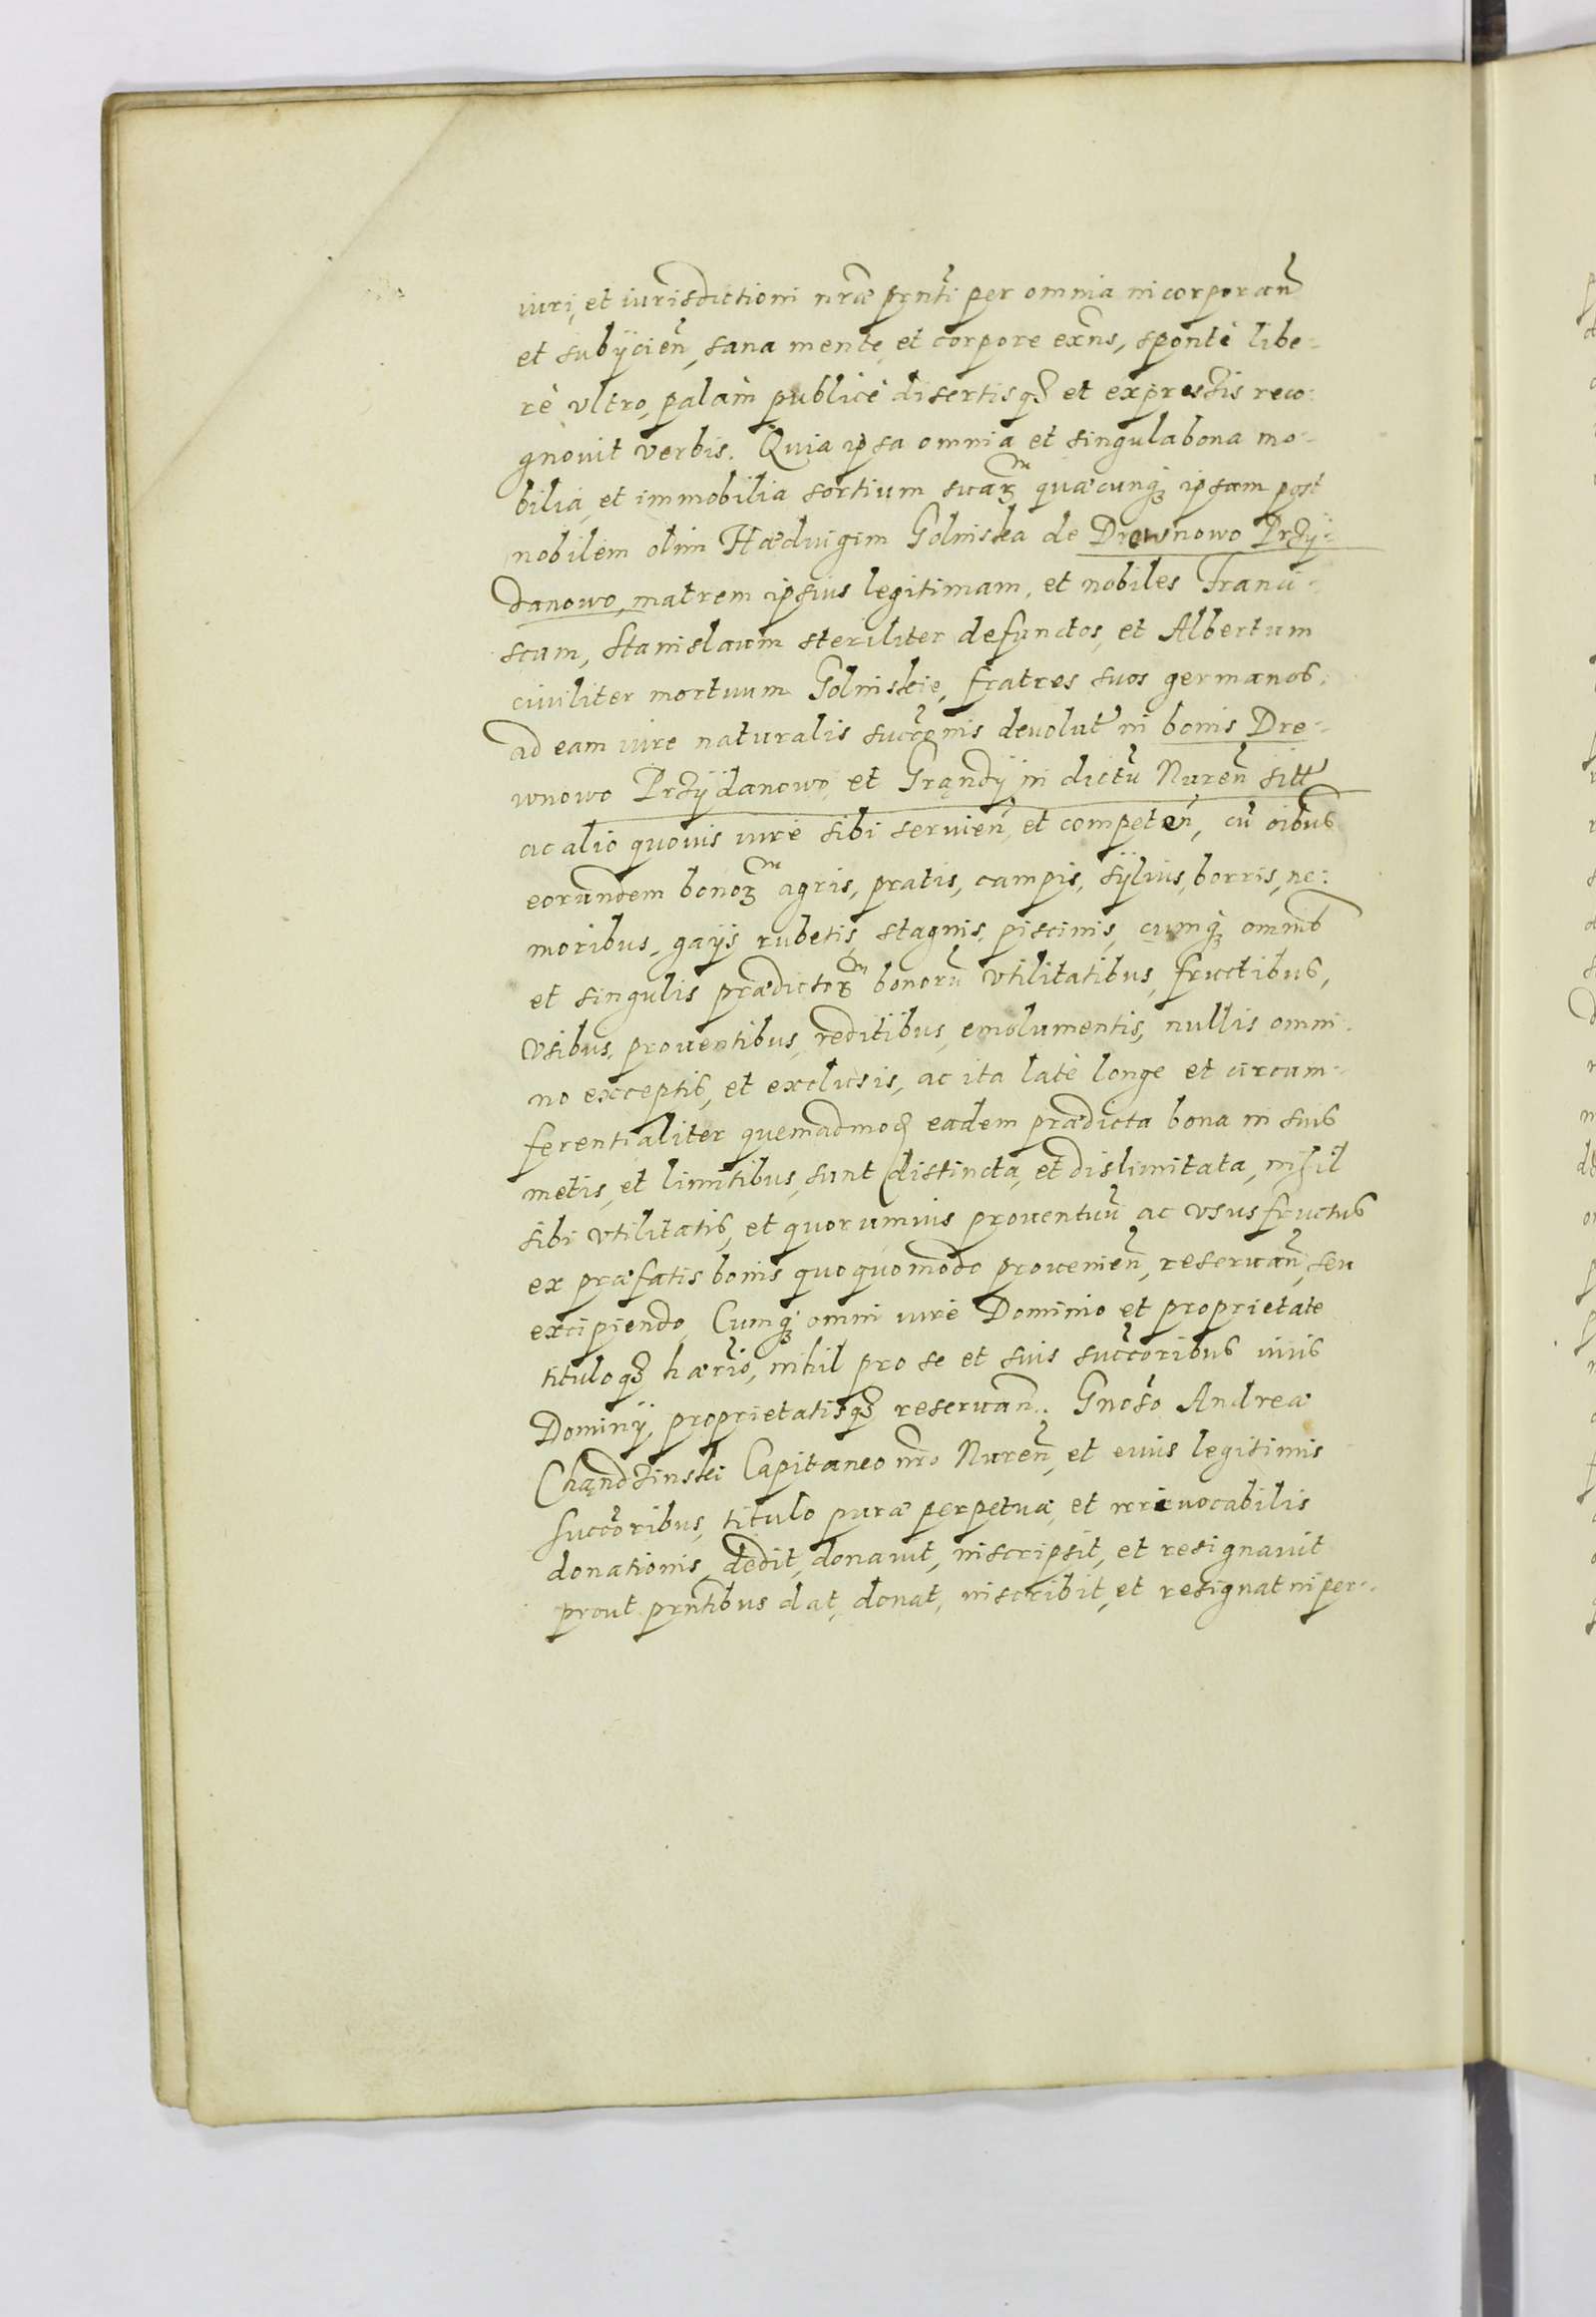 iuri, et iurisdictioni nræ prnti per omnia incorporan̄
et subÿcien̄, sana mente, et corpore exn̄s, sponte libe-
rè vltro, palàm publicè disertisq₃ et expressis reco:
gnouit verbis. Quia ipsa omnia et singula bona mo-
bilia, et immobilia sortium suaꝝ quæcunq₃ ipsam post
nobilem olim Hæduigim Golniska de Drewnowo Przÿ-
danowo, matrem ipsius legitimam, et nobiles Franci-
scum, Stanislaum steriliter defunctos, et Albertum
ciuiliter mortuum Golniskie, fratres suos germanos.
ad eam iure naturalis succ̄onis deuolut' in bonis Dre-
wnowo Przÿdanowo, et Grandÿ in dictū Nuren̄ sitt'
ac alio quouis iure sibi seruien̄, et competen̄, cū oībus
eorundem bonoꝝ agris, pratis, campis, sÿluis, borris, ne:
moribus, gaÿs rubetis, stagnis, piscinis, cumq₃ omnib
et singulis prædictoꝝ bonorū vtilitatibus, fructibus,
vsibus, prouentibus, reditibus, emolumentis, nullis omni-
no exceptis, et exclusis, ac ita latè longe et circum-
ferentialiter quemadmođ eadem prædicta bona in suis
metis, et limitibus, sunt distincta, et dislimitata, nihil
sibi vtilitatis, et quorumuis prouentuū ac vsusfructus
ex præfatis bonis quoquomodo prouenien̄, reseruan̄, seu
excipiendo, Cumq₃ omni iure Dominio et proprietate
tituloq₃ hærīo, nihil pro se et suis succ̄oribus iuris
Dominÿ, proprietatisq₃ reseruan̄. Gnoso Andreæ
Chandzinski Capitaneo nr̄o Nuren̄, et eiuis legitimis
succ̄oribus, titulo puræ perpetuæ, et irreuocabilis
donationis, dedit, donauit, inscripsit, et resignauit
prout prn̄tibus dat, donat, inscribit, et resignat in per-